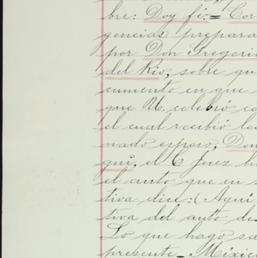 bre: Doy fé:= Cor
gencias prepara
por Don Gregori
del Rio, sobre qu
cumento en que
que N. celebró co
el cual recibió la
nado esposo, Don
qui, el C. Juez h
el auto que en s
tiva dice: (Aqui
tiva del auto de
Lo que hago sa
presente.- México